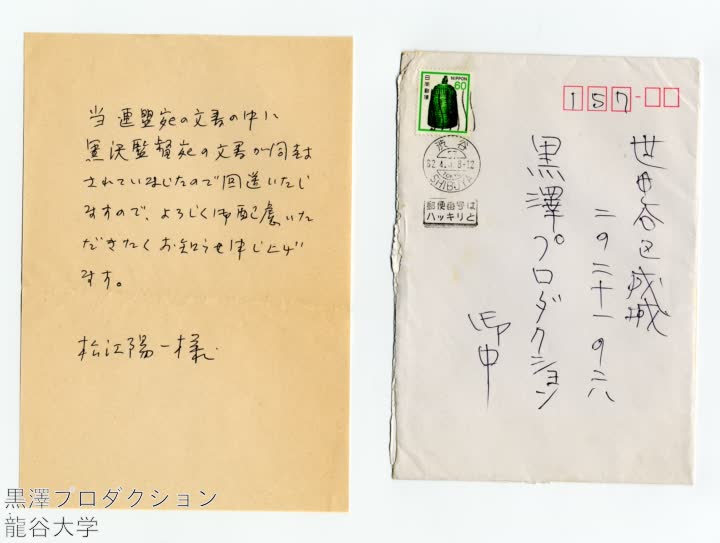 当連盟宛の文書の中に
黒沢監督宛の文書が同封
されていましたので回送いたし
ますので、よろしく御配慮いた
だきたくお知らせ申し上げ
ます。
松江陽一様
日本郵便
NIPPON
60
渋谷
SHIBUYA
郵便番号は
ハッキリと
157
世田谷区成城
二の二十一の二八
黒澤プロダクション
御中
黒澤プロダクション
龍谷大学